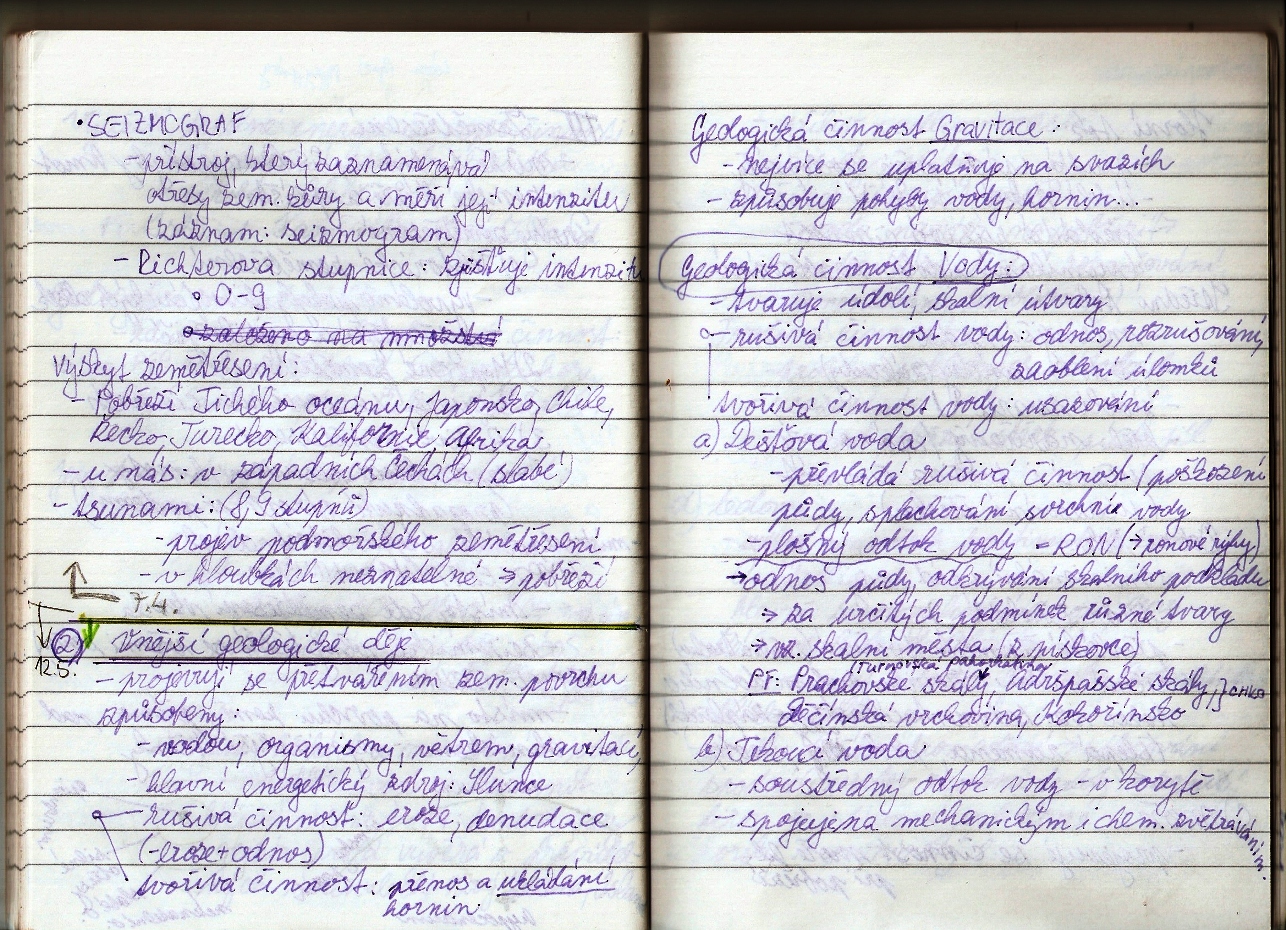 • SEIZMOGRAF
- přístroj, který zaznamenává
otřesy zem. kůry a měří její intenzitu
(záznam: seizmogram)
- Richterova stupnice: zjišťuje intenzitu
∘ 0-9
∘ založeno na množství
Výskyt zemětřesení:
- Pobřeží Tichého oceánu, Japonsko, Chile,
Řecko, Turecko, Kalifornie, Afrika
- u nás: v západních Čechách (slabé)
- tsunami: (8,9 stupňů)
- projev podmořského zemětřesení
- v hloubkách neznatelné → pobřeží
7.4.
② Vnější geologické děje
12.5.
- projevují se přetvářením zem. povrchu
způsobeny:
- vodou, organismy, větrem, gravitací
- hlavní energetický zdroj: Slunce
- rušivá činnost: eroze, denudace
(-eroze+odnos)
tvořivá činnost: přenos a ukládání
hornin
Geologická činnost Gravitace:
- nejvíce se uplatňuje na svazích
- způsobuje pohyby vody, hornin...
Geologická činnost Vody:
- tvaruje údolí, skalní útvary
- rušivá činnost vody: odnos, rozrušování,
zaoblení úlomků
tvořivá činnost vody: usazování
a) Dešťová voda
- převládá rušivá činnost (poškození
půdy, splachování svrchnie vody
- plošný odtok vody = RON (→ ronové rýhy)
→ odnos půdy, odkrývání skalního podkladu
→ za určitých podmínek různé tvary
→ vz. skalní města (z pískovce)
(Turnovská pahorkatina)
Př: Prachovské skály, Adršpašské skály, } CHKO
Děčínská vrchovina, Kokořínsko
b) Teková voda
- soustředný odtok vody - v korytě
- spojujena mechanickým i chem. zvětráváním.